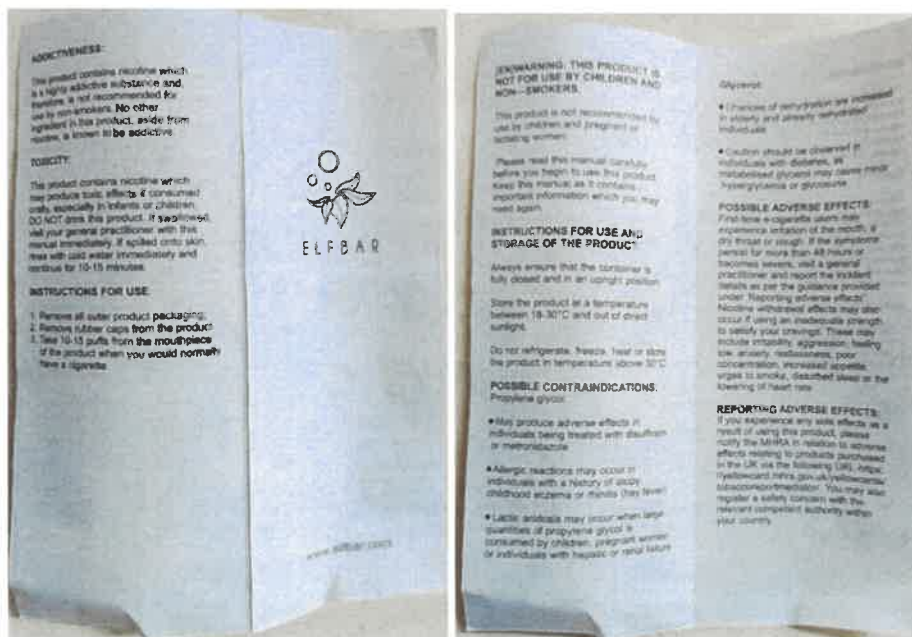 ADDICTIVENESS:
This product contains nicotine which
is a highly addictive substance and,
therefore, is not recommended for
use by non-smokers. No other
ingredient in this product, aside from
nicotine, is known to be addictive.
TOXICITY:
This product contains nicotine which
may produce toxic effects if consumed
orally, especially in infants or children.
DO NOT drink this product. If swallowed,
visit your general practitioner with this
manual immediately. If spilled onto skin,
rinse with cold water immediately and
continue for 10-15 minutes.
INSTRUCTIONS FOR USE:
1. Remove all outer product packaging.
2. Remove rubber caps from the product
3. Take 10-15 puffs from the mouthpiece
of the product when you would normally
have a cigarette.
ELFBAR
www.elfbar.com
(EN)WARNING: THIS PRODUCT IS
NOT FOR USE BY CHILDREN AND
NON—SMOKERS.
This product is not recommended for
use by children and pregnant or
lactating women.
Please read this manual carefully
before you begin to use this product.
Keep this manual as it contains
important information which you may
need again.
INSTRUCTIONS FOR USE AND
STORAGE OF THE PRODUCT:
Always ensure that the container is
fully closed and in an upright position.
Store the product at a temperature
between 18-30°C and out of direct
sunlight.
Do not refrigerate, freeze, heat or store
the product in temperature above 30°C
POSSIBLE CONTRAINDICATIONS:
Propylene glycol:
●May produce adverse effects in
individuals being treated with disulfiram
or metronidazole
●Allergic reactions may occur in
individuals with a history of atopy,
childhood eczema or rhinitis (hay fever)
●Lactic acidosis may occur when large
quantities of propylene glycol is
consumed by children, pregnant women
or individuals with hepatic or renal failure
Glycerol:
●Chances of dehydration are increased
in elderly and already dehydrated
individuals
●Caution should be observed in
individuals with diabetes, as
metabolised glycerol may cause minor
hyperglycemia or glycosuria
POSSIBLE ADVERSE EFFECTS:
First-time e-cigarette users may
experience irritation of the mouth, a
dry throat or cough. If the symptoms
persist for more than 48 hours or
becomes severe, visit a general
practitioner and report the incident
details as per the guidance provided
under 'Reporting adverse effects'.
Nicotine withdrawal effects may also
occur if using an inadequate strength
to satisfy your cravings. These may
include irritability, aggression, feeling
low, anxiety, restlessness, poor
concentration, increased appetite,
urges to smoke, disturbed sleep or the
lowering of heart rate.
REPORTING ADVERSE EFFECTS:
If you experience any side effects as a
result of using this product, please
notify the MHRA in relation to adverse
effects relating to products purchased
in the UK via the following URL: https:
//yellowcard.mhra.gov.uk/yellowcards/
You may also
register a safety concern with the
relevant competent authority within
your country.